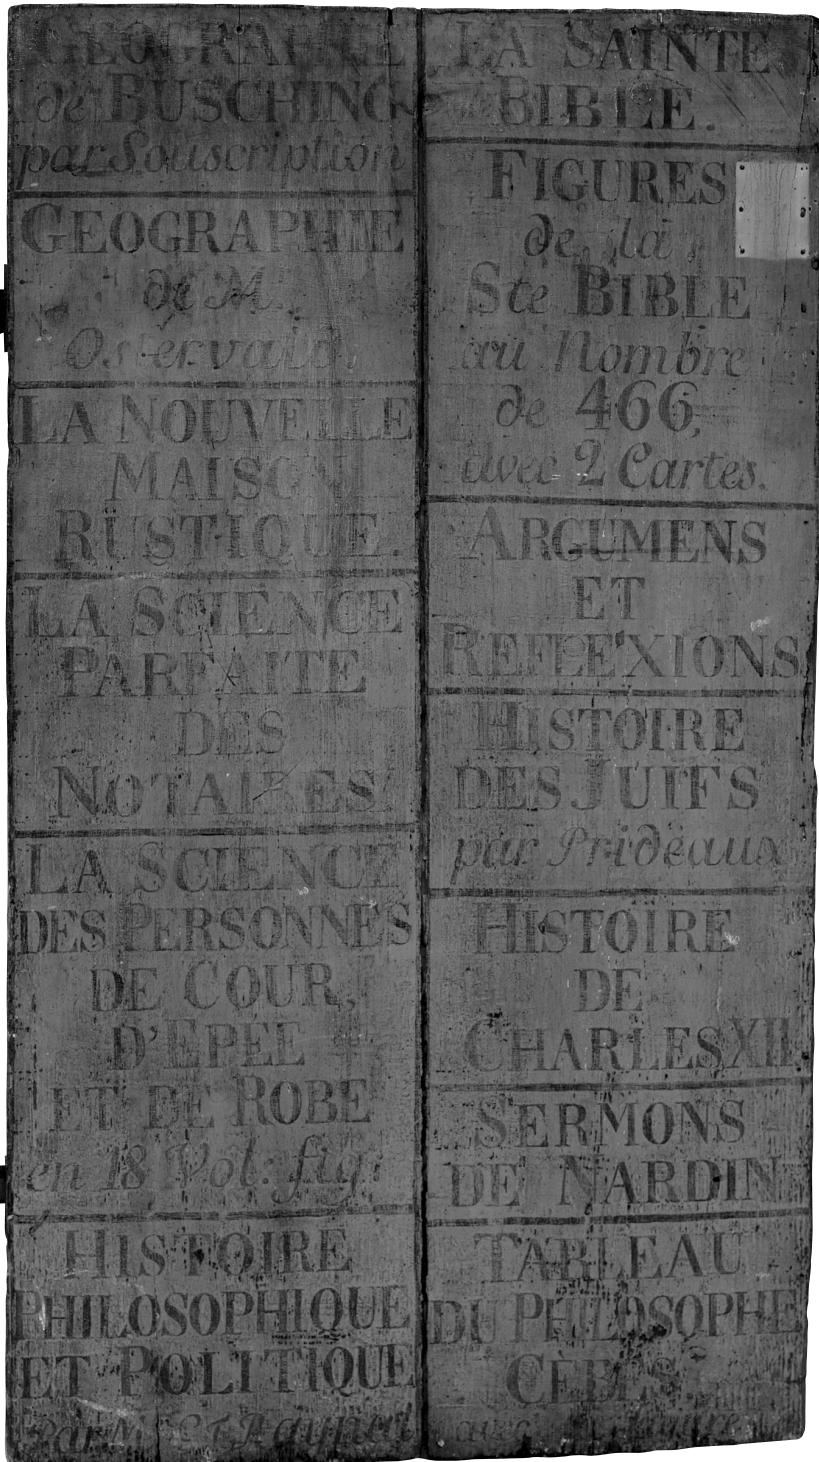 GEOGRAPHIE
de BUSCHING
par Souscription
GEOGRAPHIE
de M.
Ostervald.
LA NOUVELLE
MAISON
RUSTIQUE.
LA SCIENCE
PARFAITE
DES
NOTAIRES
LA SCIENCE
DES PERSONNES
DE COUR,
D'EPÉE
ET DE ROBE
en 18 Vol: fig:
HISTOIRE
PHILOSOPHIQUE
ET POLITIQUE
Par Mr Raynal
LA SAINTE
BIBLE.
FIGURES
de la
Ste BIBLE
au Nombre
de 466,
avec 2 Cartes.
ARGUMENS
ET
REFLE'XIONS
HISTOIRE
DES JUIFS
par Prideaux
HISTOIRE
DE
CHARLES XII.
SERMONS
DE NARDIN
TABLEAU
DU PHILOSOPHE
CÉBÉS.
avec figure